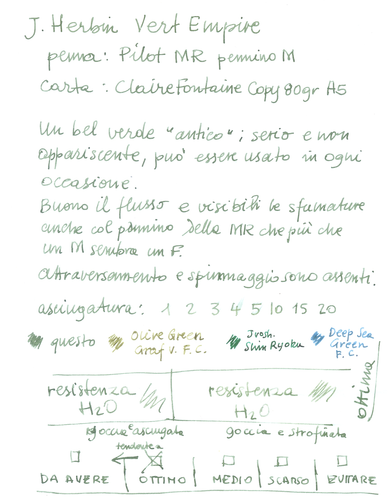 J. Herbin Vert Empire
penna: Pilot MR pennino M
carta : Clairefontaine Copy 80gr A5
Un bel verde "antico"; serio e non
appariscente, può essere usato in ogni
occasione.
Buono il flusso e visibili le sfumature
anche col pennino della MR che più che
un M sembra un F.
attraversamento e spiumaggio sono assenti.
asciugatura: 1 2 3 4 5 10 15 20
questo
Olive Green
Graf V. F.C.
Irosh.
Shin Ryoku
Deep Sea
Green
F.C.
resistenza
H2O
resistenza
H2O
ottima
goccia e asciugata
goccia e strofinata
tendente a
DA AVERE
OTTIMO
MEDIO
SCARSO
EVITARE